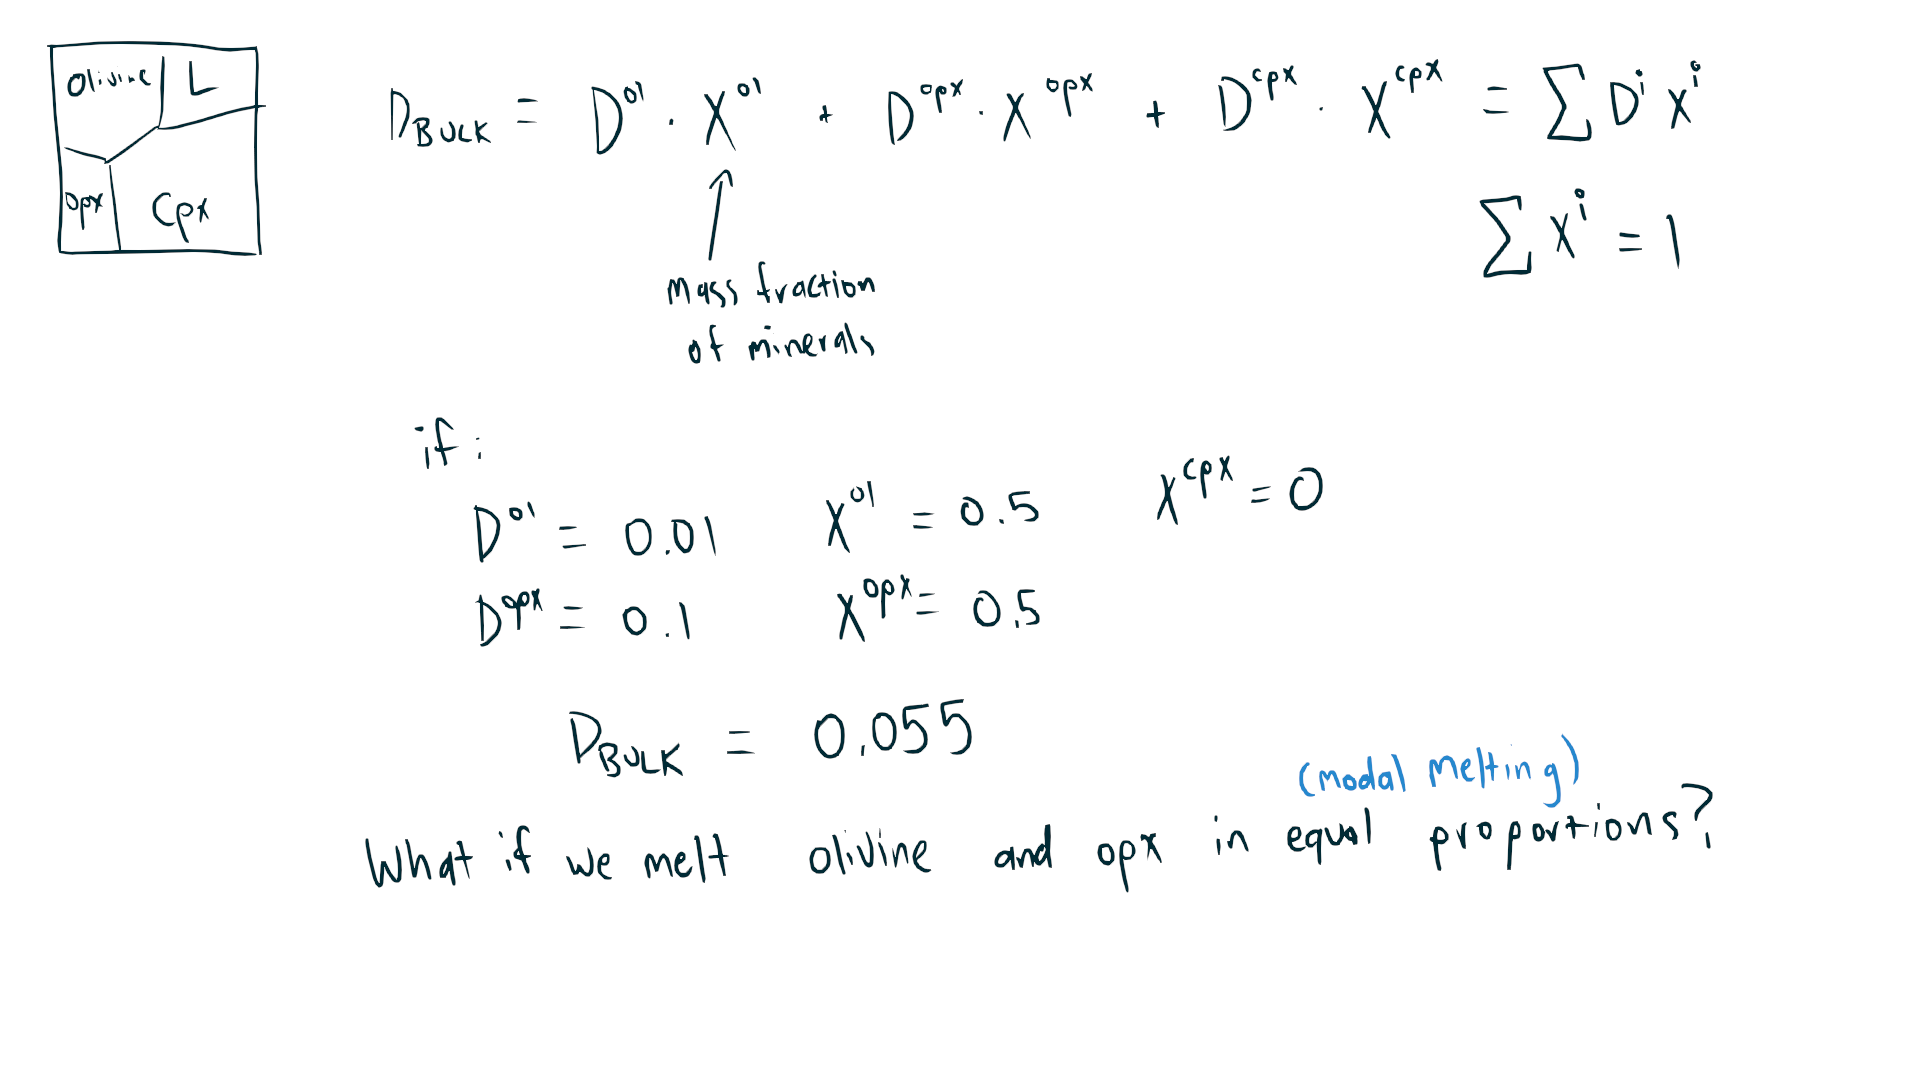 Olivine L
opx Cpx
D_BULK = D^ol · X^ol + D^opx · X^opx + D^cpx · X^cpx = ∑ D^i X^i
∑ X^i = 1
Mass fraction
of minerals
if:
D^ol = 0.01 X^ol = 0.5 X^cpx = 0
D^opx = 0.1 X^opx = 0.5
D_BULK = 0.055
(modal melting)
What if we melt olivine and opx in equal proportions?